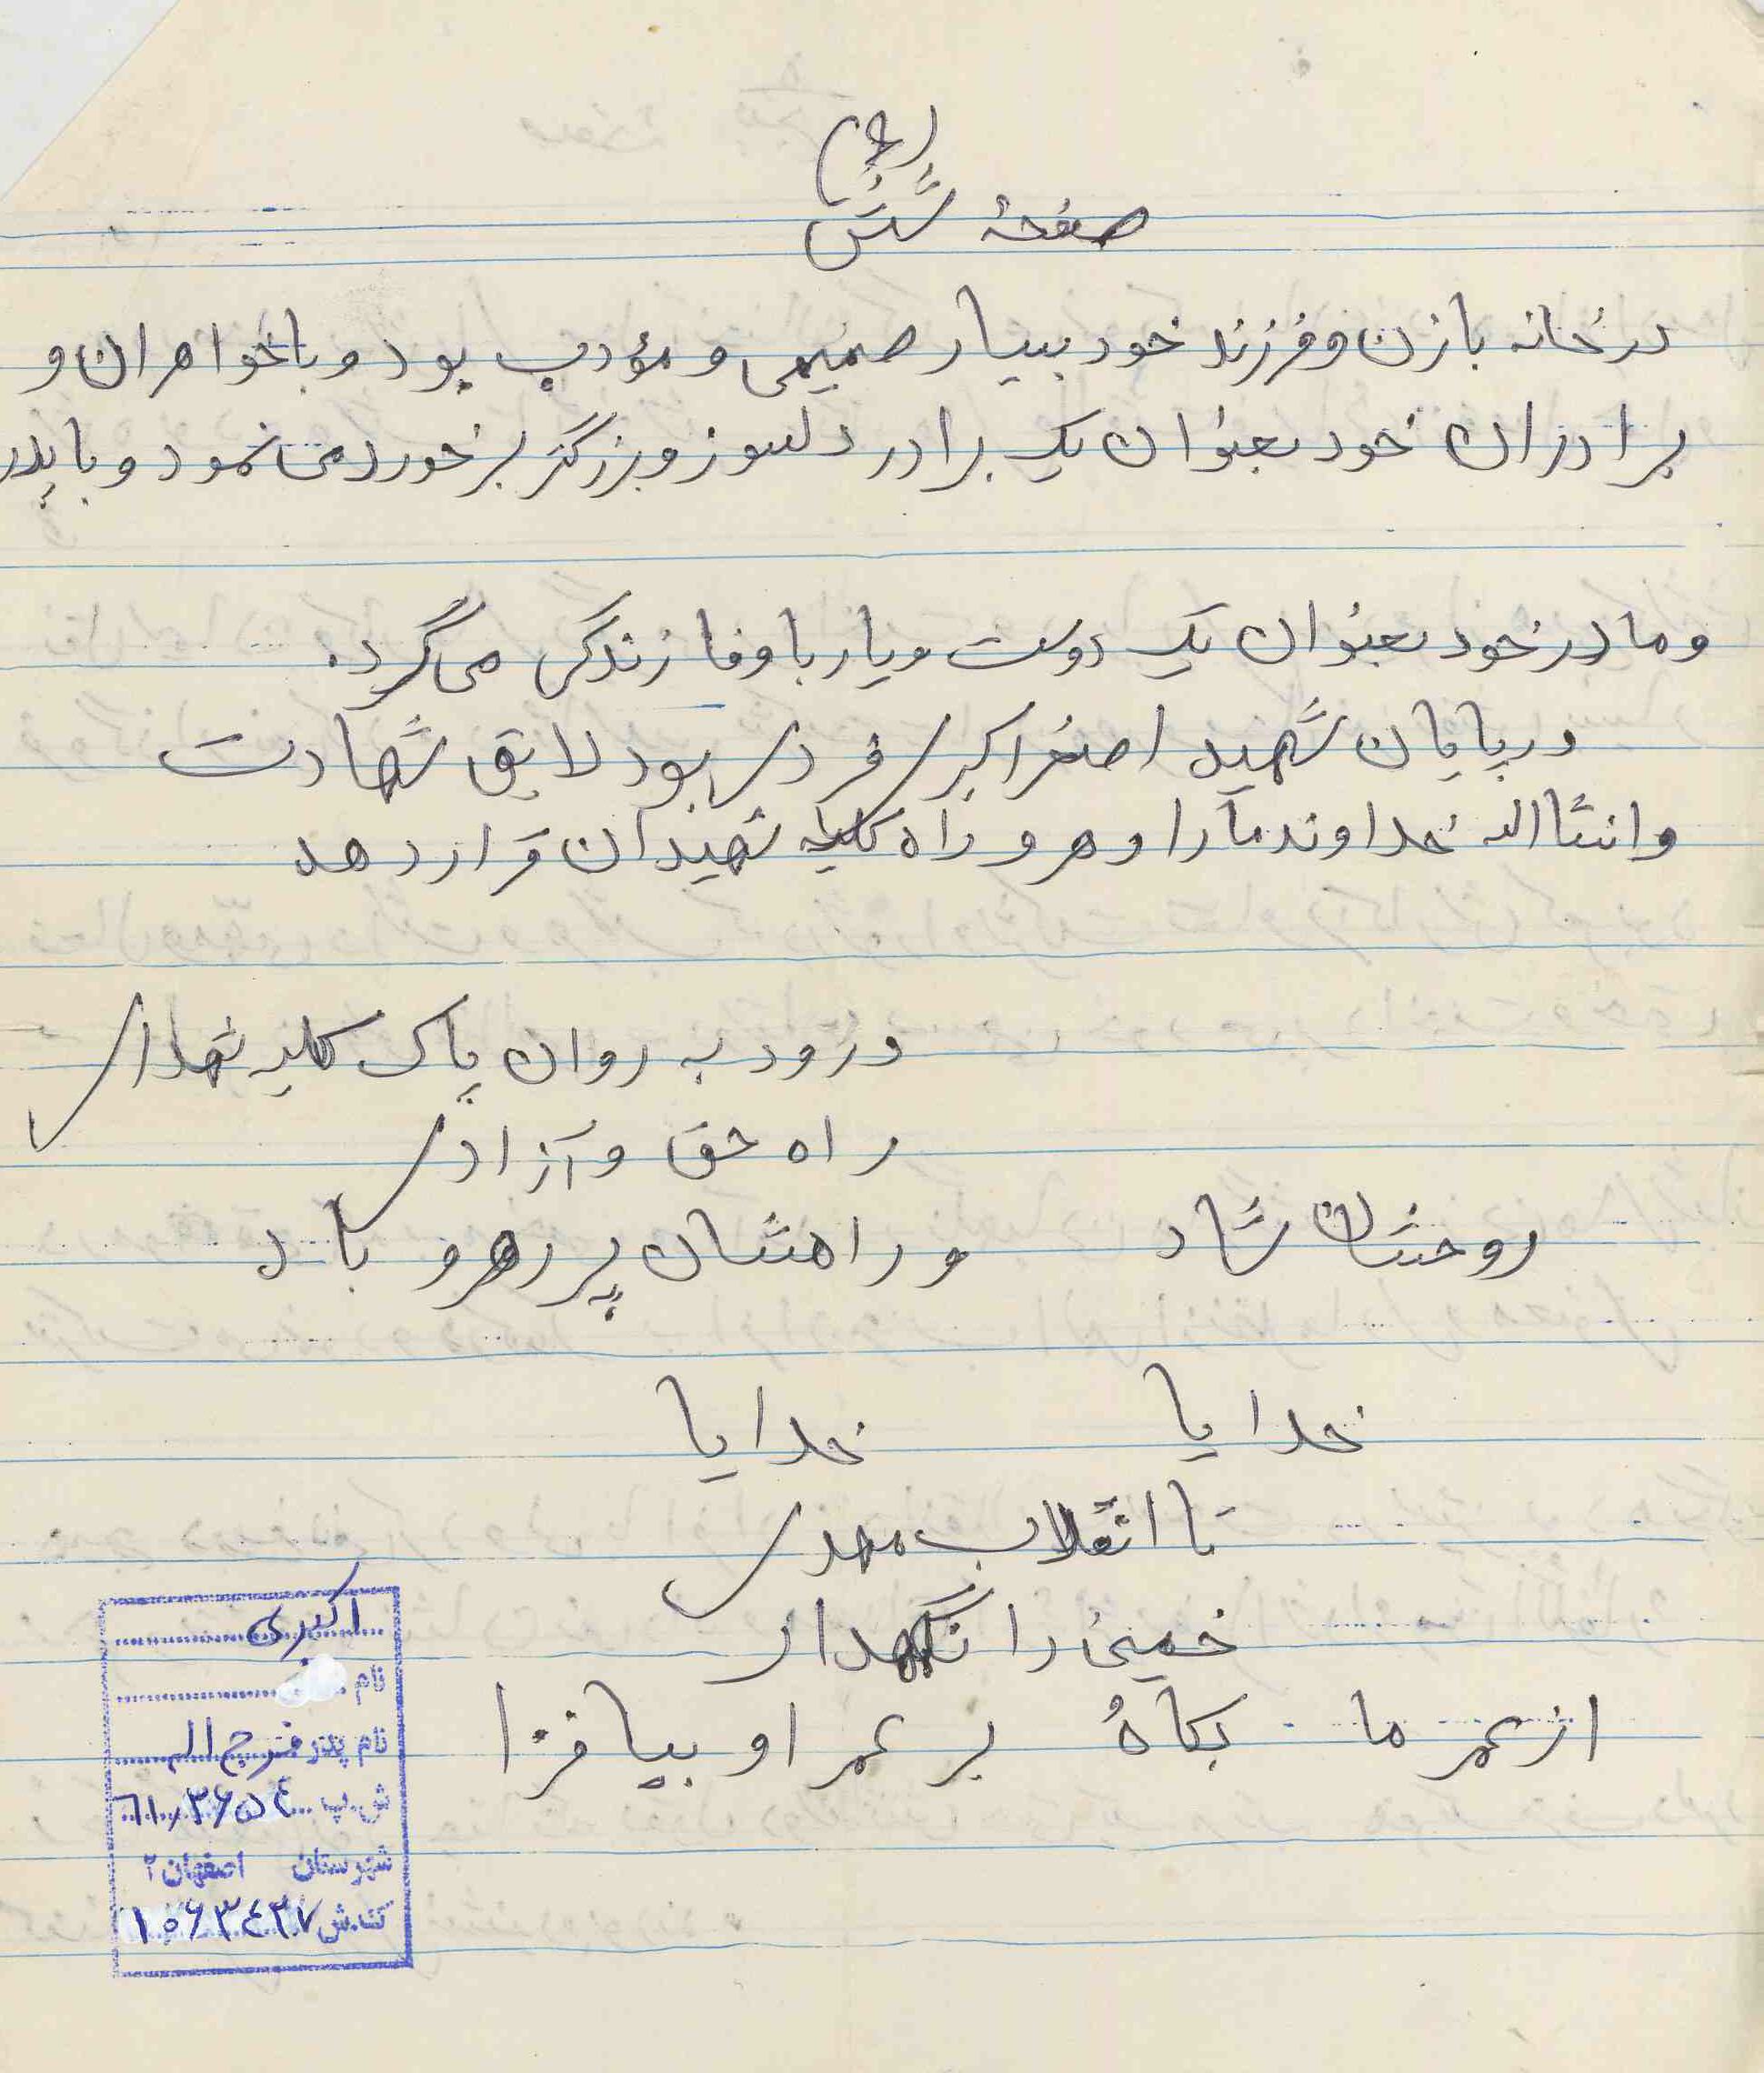 (۶)
صفحهٔ شش
در خانه با زن و فرزند خود بسیار صمیمی و مؤدب بود و با خواهران و
برادران خود بعنوان یک برادر دلسوز و بزرگتر برخورد می نمود و با پدر
و مادر خود بعنوان یک دوست و یار با وفا زندگی می کرد.
در پایان شهید اصغر اکبری فردی بود لایق شهادت
و انشاالله خداوند ما را رهرو راه کلیه شهیدان قرار دهد
درود به روان پاک کلیه شهدای
راه حق و آزادی
روحشان شاد و راهشان پر رهرو باد
خدایا خدایا
تا انقلاب مهدی
خمینی را نگهدار
از عمر ما بکاه بر عمر او بیافزا
اکبری
نام
نام پدر فرج اله
ش.پ ۶۱،۳۶۵۴
شهرستان اصفهان ۲
کد.ش ۱۰۶۳۴۳۷